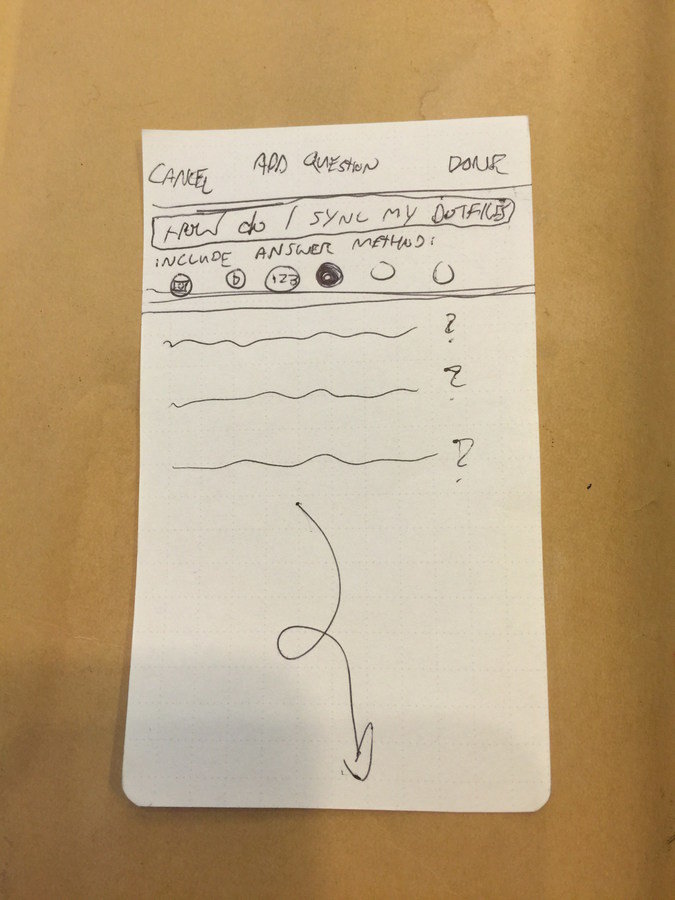 CANCEL ADD QUESTION DONE
HOW do I SYNC MY DOTFILES
INCLUDE ANSWER METHOD:
123
?
?
?